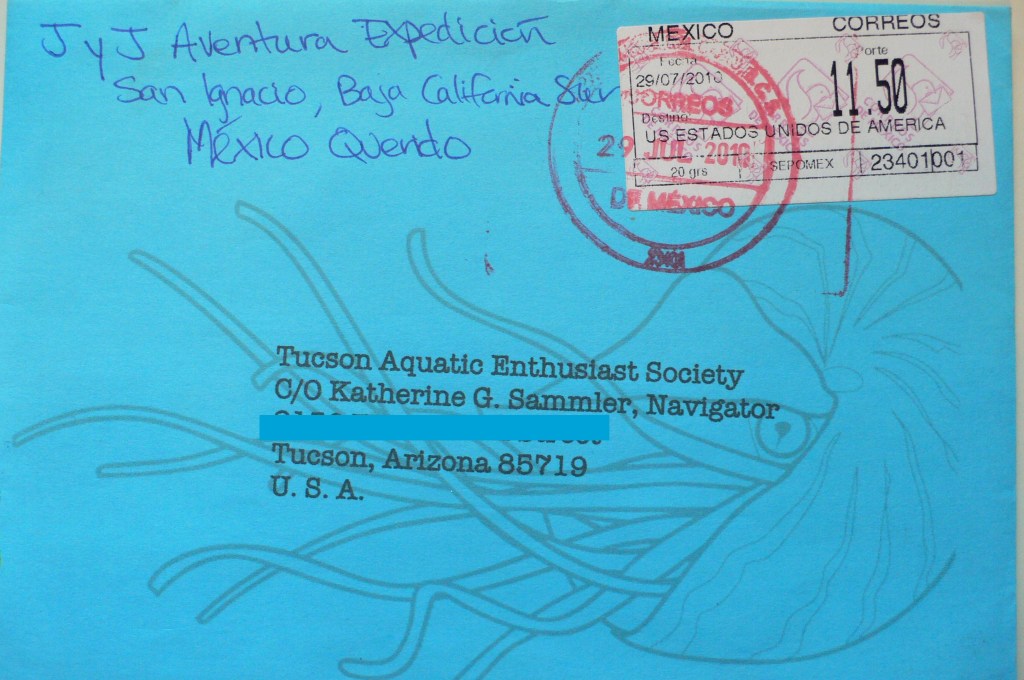 J y J Aventura Expedición
San Ignacio, Baja California Sur
México Querido
MEXICO CORREOS
Fecha
Porte
29/07/2010
11.50
Destino
US ESTADOS UNIDOS DE AMERICA
20 grs
SEPOMEX
23401001
CORREOS
29 JUL 2010
DE MÉXICO
Tucson Aquatic Enthusiast Society
C/O Katherine G. Sammler, Navigator
Street
Tucson, Arizona 85719
U. S. A.